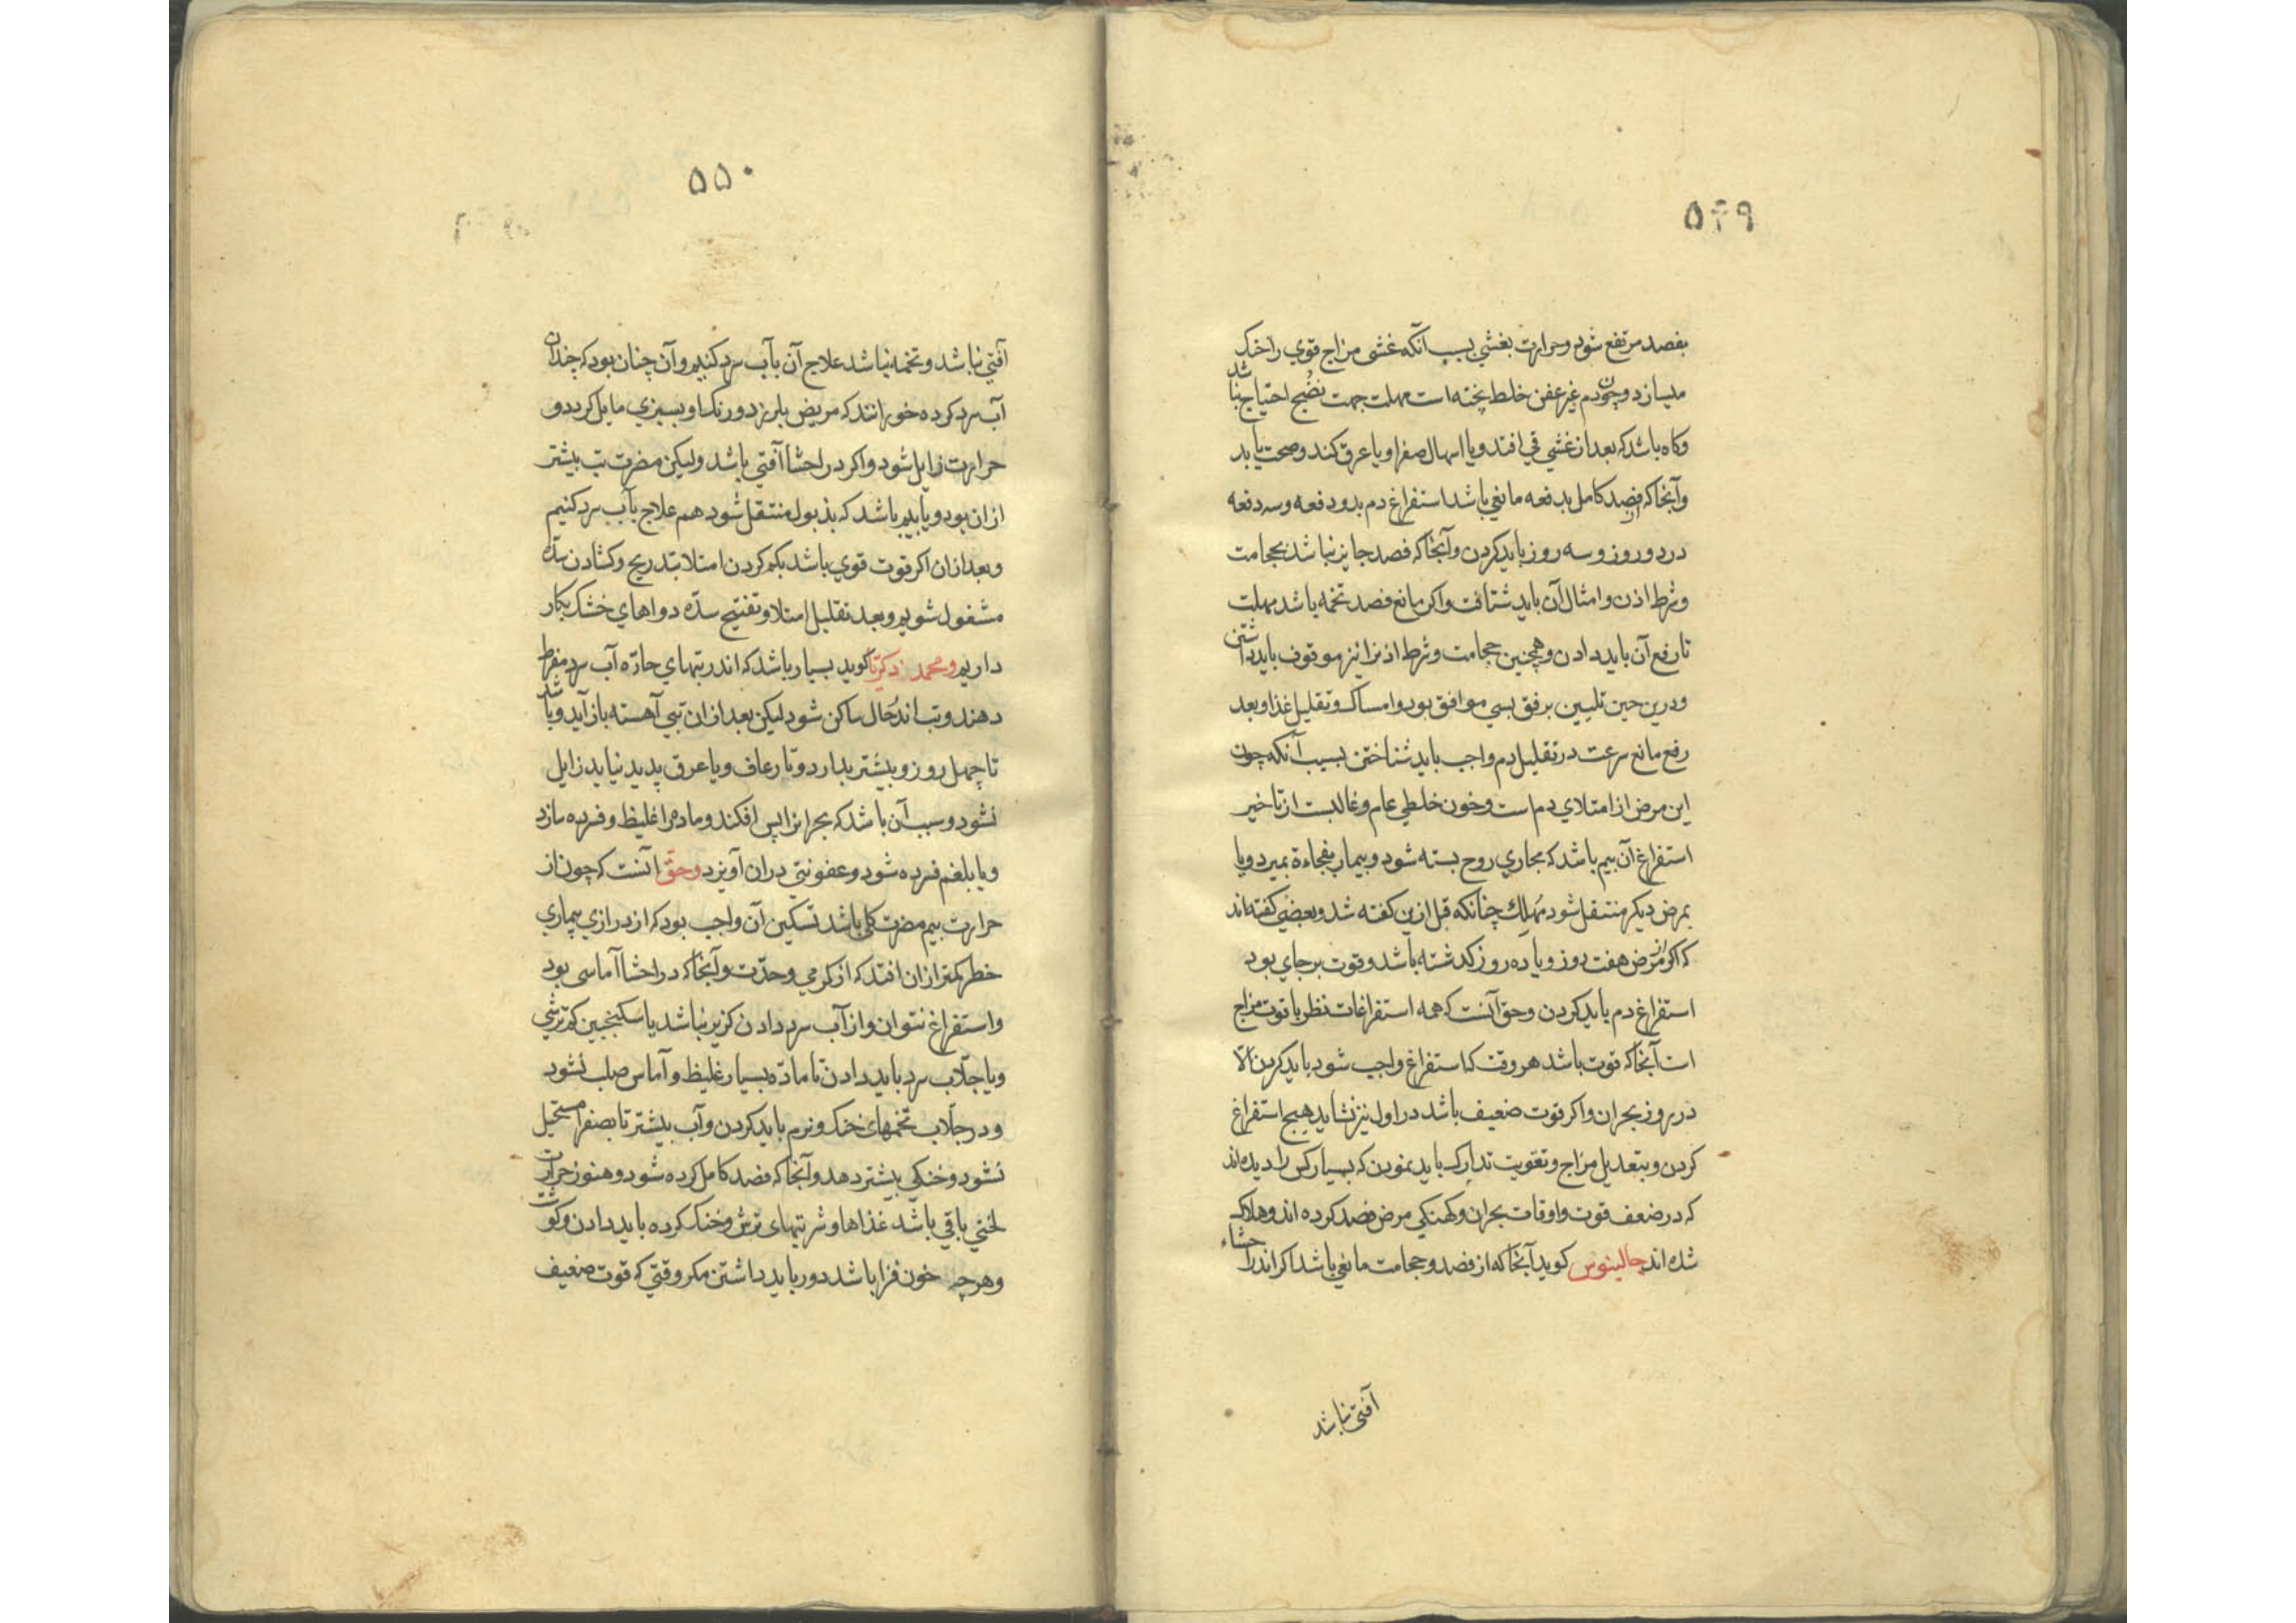 ۵۴۹
بفصد مرتفع شود و حرارت بغشی بسبب آنکه غشی مزاج قوی را خنک
میسازد و چون دم غیر عفن خلط پخته است مهلت جهت نضج احتیاج نباشد
و کاه باشد که بعد از غشی قی افتد و یا اسهال صفرا و یا عرق کند و صحت یابد
و آنجا که از فصد کامل بدفعه مانعی باشد استفراغ دم بدو دفعه و سه دفعه
در دو روز و سه روز باید کردن و آنجا که فصد جایز نباشد بحجامت
و شرط اذن و امثال آن باید شتافت و اکر مانع فصد تخمه باشد مهلت
تا رفع آن باید دادن و همچنین حجامت و شرط اذنرا نیز موقوف باید داشتن
و درین حین تلیین برفق بسی موافق بود و امساک و تقلیل غذا و بعد
رفع مانع سرعت در تقلیل دم واجب باید شناختن بسبب آنکه چون
این مرض از امتلای دم است و خون خلطی عام و غالبست از تاخیر
استفراغ آن بیم باشد که مجاری روح بسته شود و بیمار بفجاءة بمیرد و یا
بمرض دیکر منتقل شود مهلک چنانکه قبل ازین کفته شد و بعضی کفته اند
که اکر از مرض هفت روز و یا ده روز کذشته باشد و قوت بر جای بود
استفراغ دم باید کردن و حق آنست که همه استفراغات نظر با قوت مزاج
است آنجا که قوت باشد هر وقت که استفراغ واجب شود باید کردن الّا
در روز بحران و اکر قوت ضعیف باشد در اول نیز نشاید هیچ استفراغ
کردن و بتعدیل مزاج و تقویت تدارک باید نمودن که بسیار کس را دیده اند
که در ضعف قوت و اوقات بحران و کهنکی مرض فصد کرده اند و هلاک
شده اند جالینوس کوید آنجا که از فصد و حجامت مانعی باشد اکر اندر احشاء
آفتی نباشد
۵۵۰
آفتی نباشد و تخمه نباشد علاج آن بآب سرد کنیم و آن چنان بود که چندان
آب سرد کرده خورانند که مریض بلرزد و رنک او بسبزی مایل کردد و
حرارت زایل شود و اکر در احشا آفتی باشد ولیکن مضرت تب بیشتر
ازان بود و یا بیم باشد که بذبول منتقل شود هم علاج بآب سرد کنیم
و بعد ازان اکر قوت قوی باشد بکم کردن امتلا بتدریج و کشادن سدّه
مشغول شویم و بعد تقلیل امتلا و تفتیح سدّه دواهای خشک بکار
داریم و محمد زکریّا کوید بسیار باشد که اندر تبهای حادّه آب سرد مفرط
دهند و تب اندر حال ساکن شود لیکن بعد ازان تبی آهسته باز آید و باشد
تا چهل روز و بیشتر بدارد و تا رعاف و یا عرق پدید نیاید زایل
نشود و سبب آن باشد که بحرانرا پس افکند و ماده را غلیظ و فسرده سازد
و یا بلغم فسرده شود و عفونتی دران آویزد و حقّ آنست که چون از
حرارت بیم مضرت کلی باشد تسکین آن واجب بود که از درازی بیماری
خطر کمتر ازان افتد که از کرمی و حدّت و آنجا که در احشا آماسی بود
و استفراغ نتوان و از آب سرد دادن کزیر نباشد با سکنجبین کم ترشی
و یا جلّاب سرد باید دادن تا مادّه بسیار غلیظ و آماس صلب نشود
و در جلّاب تخمهای خنک و نرم باید کردن و آب بیشتر تا بصفرا مستحیل
نشود و خنکی بیشتر دهد و آنجا که فصد کامل کرده شود و هنوز حرارت
لختی باقی باشد غذاها و شربتهای ترش و خنک کرده باید دادن و کوشت
و هرچه خون فزا باشد دور باید داشتن مکر وقتی که قوت ضعیف